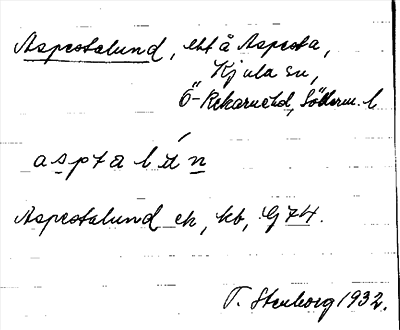 Aspestalund, ett å Aspesta,
Kjula sn,
Ö-Rekarne hd, Söderm. l
asptalún
Aspestalund ek, kb, G74.
T. Stenborg 1932.